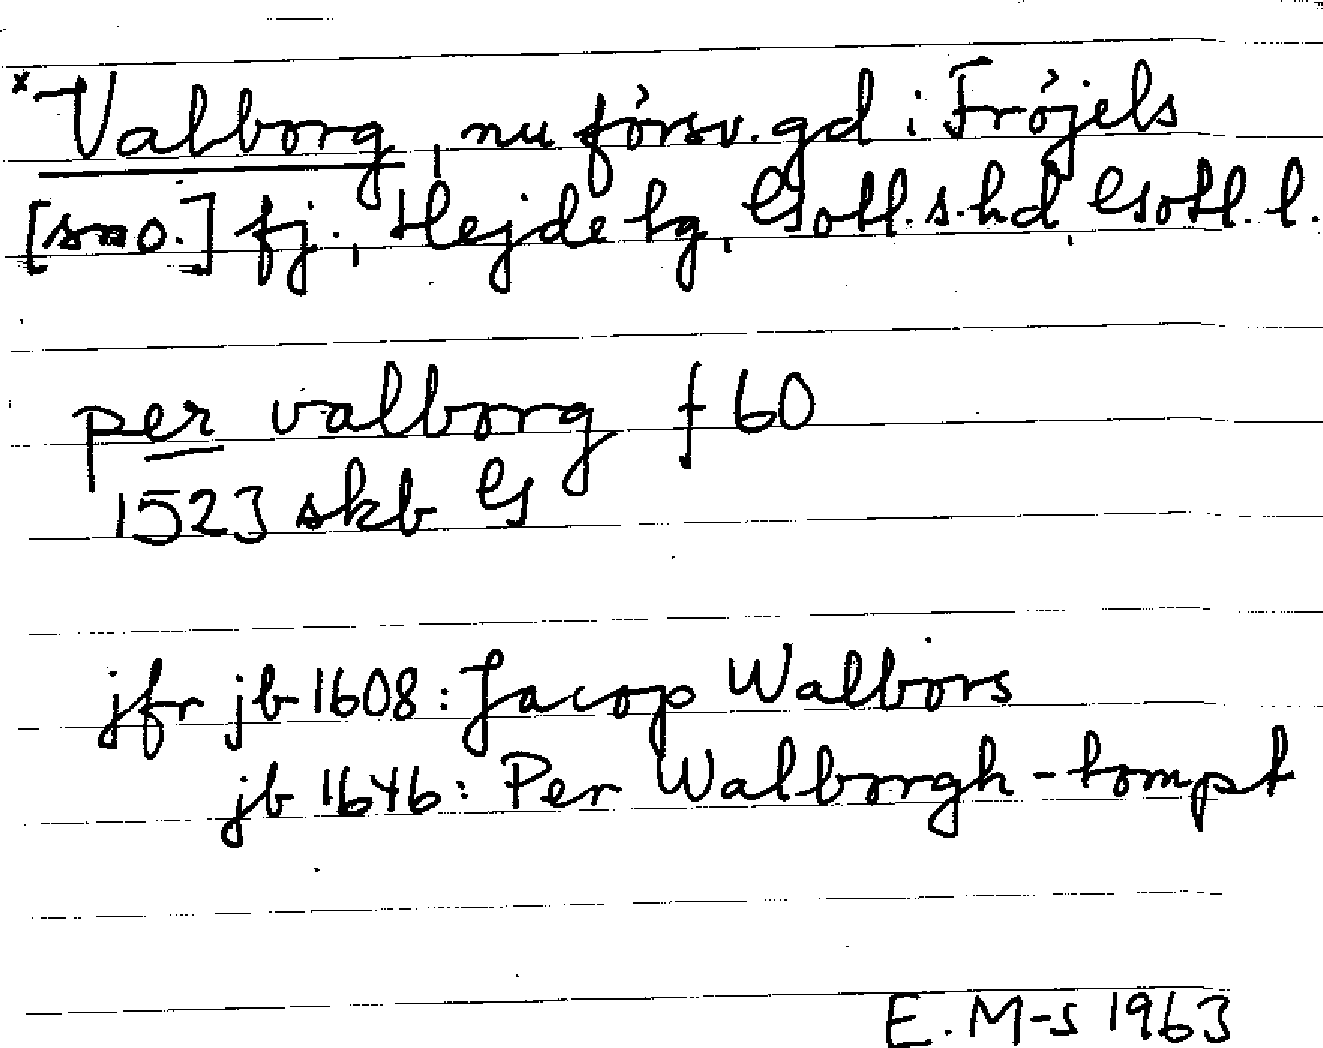 *Valborg, nu försv. gd i Fröjels
[sno.] fj., Hejde tg, Gotl. s. hd, Gotl. l.
per valborg f 60
1523 skb G
jfr jb 1608: Jacop Walbors
jb 1646: Per Walborgh-tompt
E. M-s 1963